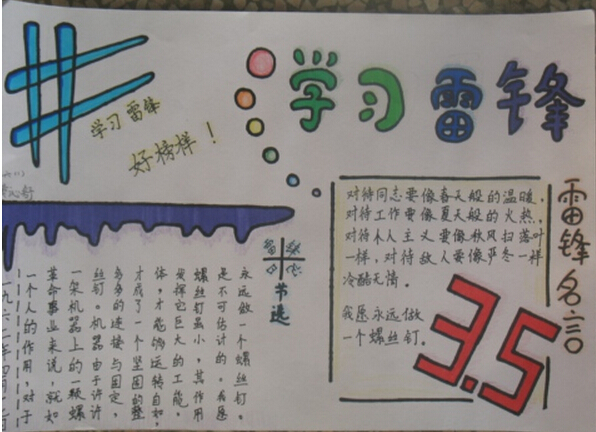 学习雷锋
学习雷锋
好榜样！
对待同志要像春天般的温暖，
对待工作要像夏天般的火热。
对待个人主义要像秋风扫落叶
一样，对待敌人要像严冬一样
冷酷无情。
我愿永远做
一个螺丝钉。
雷锋名言
3.5
节选
一九六二年四月
一个人的作用，对于
革命事业来说，就如
一架机器上的一颗螺
丝钉。机器由于许许
多多的连接与固定，
才成了一个坚固的整
体，才能够运转自如，
发挥它巨大的工能，
螺丝钉虽小，其作用
是不可估计的。我愿
永远做一个螺丝钉。